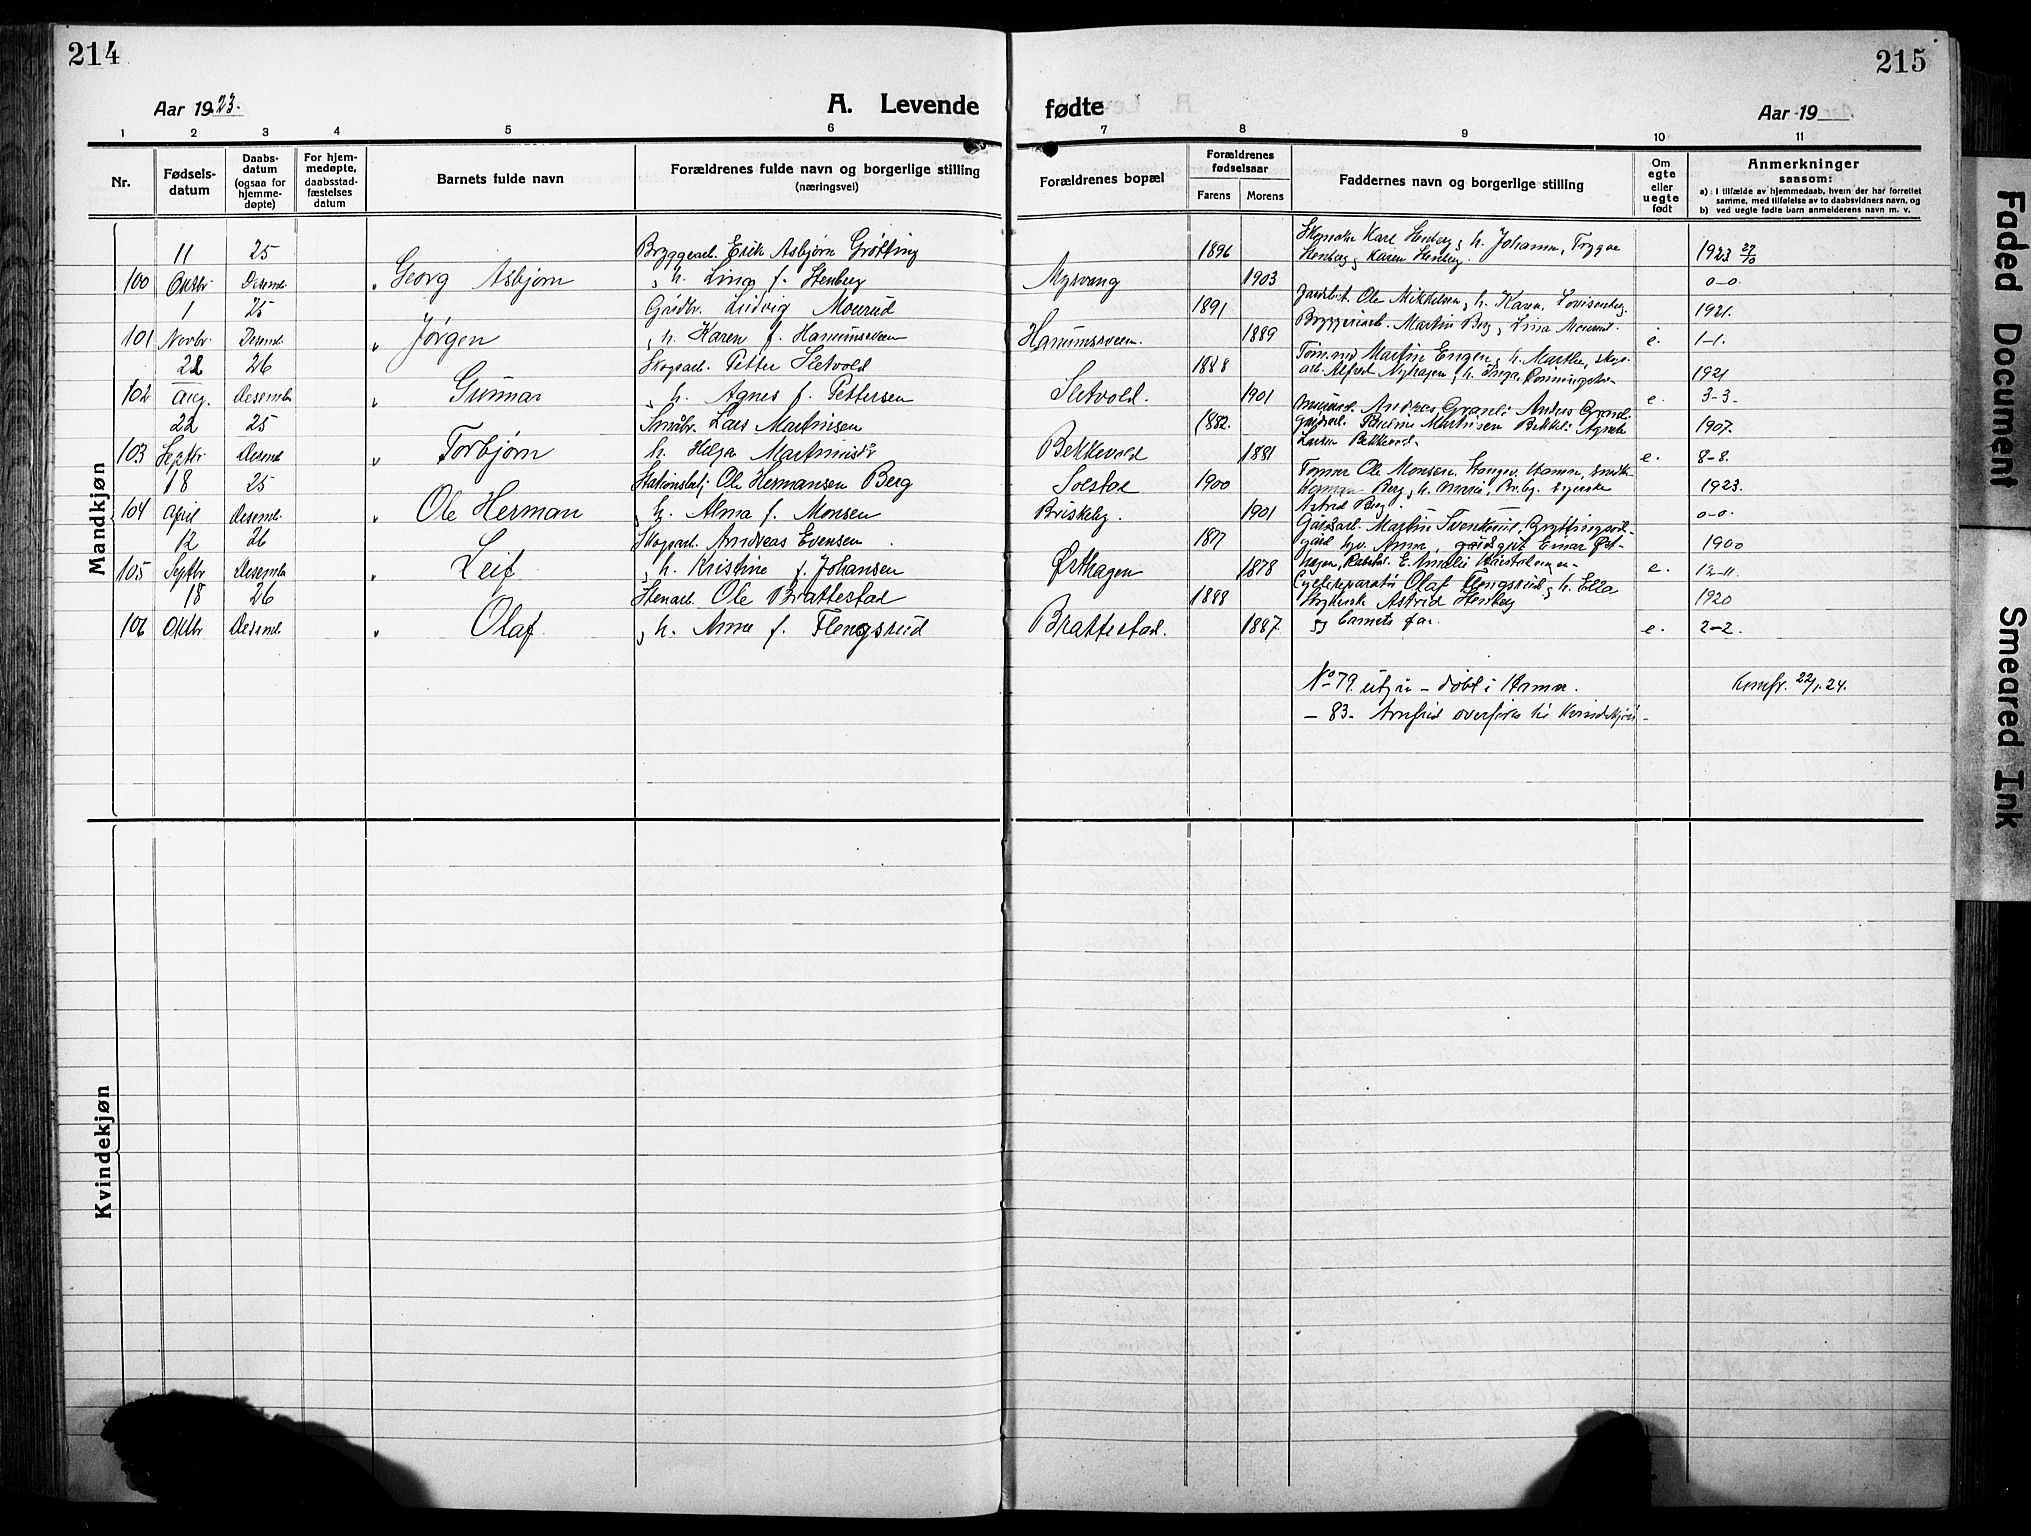 214
Aar 1923.
A. Levende
1 2 3 4 5 6
Nr.
Fødsels-
datum
Daabs-
datum
(ogsaa for
hjemme-
døpte)
For hjem-
medøpte,
daabsstad-
fæstelses
datum
Barnets fulde navn
Forældrenes fulde navn og borgerlige stilling
(næringsvei)
Mandkjøn
11 25 Byggearb. Erik Asbjørn Grøtting
100 Oktbr Desemb. " Georg Asbjørn " h. Lina f. Stenberg
1 25 Grdbr. Ludvig Mourud
101 Novbr. Desemb. " Jørgen " h. Karen f. Hanumsveen
22 26 Skogsarb. Petter Sletvold
102 Aug. Desemb " Gunnar " h. Agnes f. Pettersen
22 25 Småbr. Lars Martinsen
103 Septbr Desemb " Torbjørn h. Helga Martinusdr
18 25 Stationsbetj. Ole Hermansen Berg
104 April Desemb. " Ole Herman " h. Alma f. Monsen
12 26 Skogsarb. Andreas Evensen
105 Septbr Desemb " Leif " h. Kristine f. Johansen
18 26 Stenarb. Ole Brattestad
106 Oktbr Desemb. " Olaf " h. Anna f. Flengsrud
Kvindekjøn
215
fødte
Aar 19
7 8 9 10 11
Forældrenes bopæl
Forældrenes
fødselsaar
Farens Morens
Faddernes navn og borgerlige stilling
Om
egte
eller
uegte
født
Anmerkninger
saasom:
a) i tilfælde av hjemmedaab, hvem der har forrettet
samme, med tilføielse av to daabsvidners navn, og
b) ved uegte fødte barn anmelderens navn m. v.
Karl Stenberg, h. Johanna, Trygve
1896 Stenberg, Karen Stenberg. 1923 27/10
Myrvang 1903 0-0.
1891 Ole Mikkelsen, h. Karen, Lovisenberg. 1921.
Hanumsveen. 1889 Byggeriarb. Martin Berg, Lina Mourud. e. 1-1.
1888 Tømm. Martin Engen, h. Marthe, skogs- 1921
Sletvold. 1901 arb. Alfred Nyhagen, h. Inga, e. 3-3.
1882. Andreas Granli Anders Granli 1907.
Bekkevold 1881 Larsen Bekkevold. e. 8-8.
Solstad 1900 Tømmer Ole Monsen, Stange, Hamar, 1923.
Briskeby. 1901 Herman Berg, h. Marie, syerske 0-0.
Astrid Berg.
1877 Gaardsarb. Martin 1900
Ørthagen 1878 h. Anna, gaardsgut Einar Øst- e. 12-11.
1888 Olaf Flengsrud, h. Ella 1920
Brattestad. 1887 Astrid Stenberg e. 2-2.
og barnets far.
No 79 utgår - døbt i Hamar. Komfr. 22/1.24.
- 83 - Arnfrid overføres til Kvindekjøn -
Faded Document
Smeared Ink